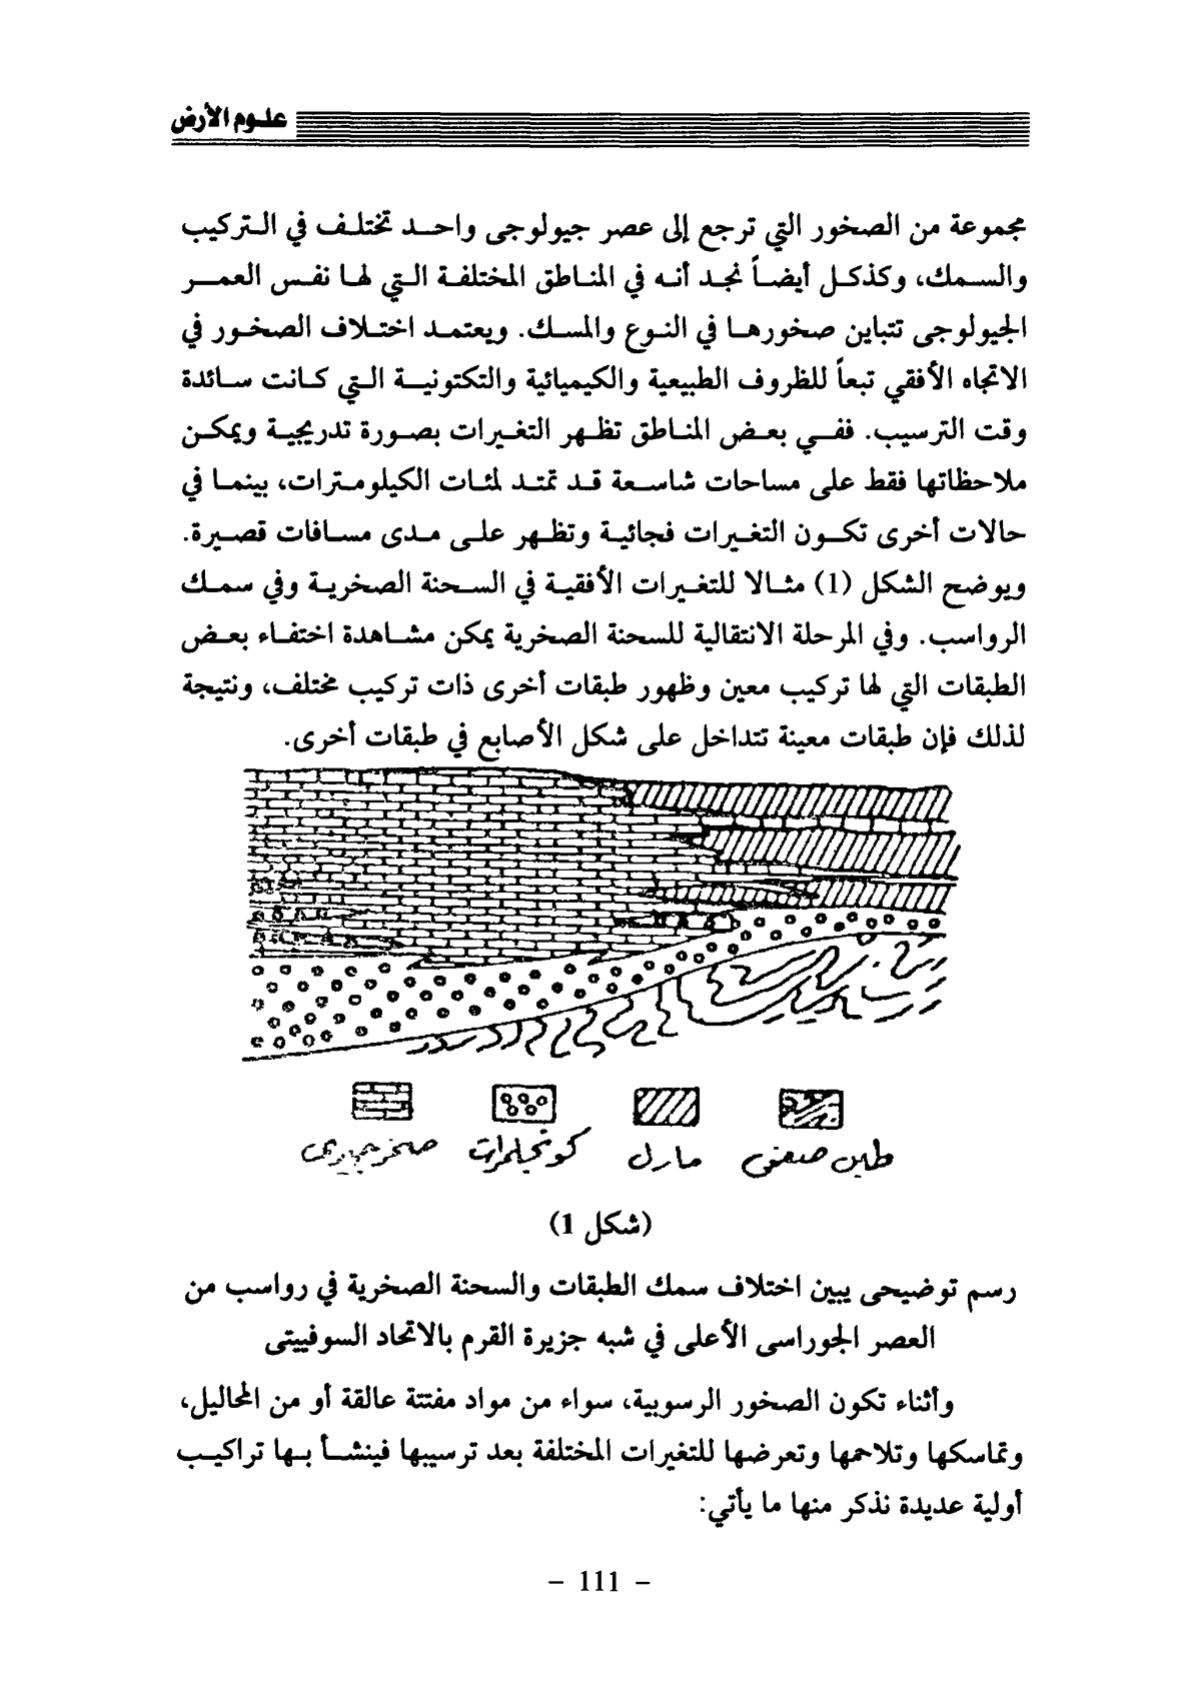 علوم الأرض
مجموعة من الصخور التي ترجع إلى عصر جيولوجى واحد تختلف في التركيب
والسمك، وكذكل أيضاً نجد أنه في المناطق المختلفة التي لها نفس العمر
الجيولوجى تتباين صخورها في النوع والمسك. ويعتمد اختلاف الصخور في
الاتجاه الأفقي تبعاً للظروف الطبيعية والكيميائية والتكتونية التي كانت سائدة
وقت الترسيب. ففي بعض المناطق تظهر التغيرات بصورة تدريجية ويمكن
ملاحظاتها فقط على مساحات شاسعة قد تمتد لمئات الكيلومترات، بينما في
حالات أخرى تكون التغيرات فجائية وتظهر على مدى مسافات قصيرة.
ويوضح الشكل (1) مثالا للتغيرات الأفقية في السحنة الصخرية وفي سمك
الرواسب. وفي المرحلة الانتقالية للسحنة الصخرية يمكن مشاهدة اختفاء بعض
الطبقات التي لها تركيب معين وظهور طبقات أخرى ذات تركيب مختلف، ونتيجة
لذلك فإن طبقات معينة تتداخل على شكل الأصابع في طبقات أخرى.
طين صفحى مارل كونجلمرات صخر جيرى
(شكل 1)
رسم توضيحى يبين اختلاف سمك الطبقات والسحنة الصخرية في رواسب من
العصر الجوراسى الأعلى في شبه جزيرة القرم بالاتحاد السوفييتى
وأثناء تكون الصخور الرسوبية، سواء من مواد مفتتة عالقة أو من المحاليل،
وتماسكها وتلاحمها وتعرضها للتغيرات المختلفة بعد ترسيبها فينشأ بها تراكيب
أولية عديدة نذكر منها ما يأتي:
- 111 -